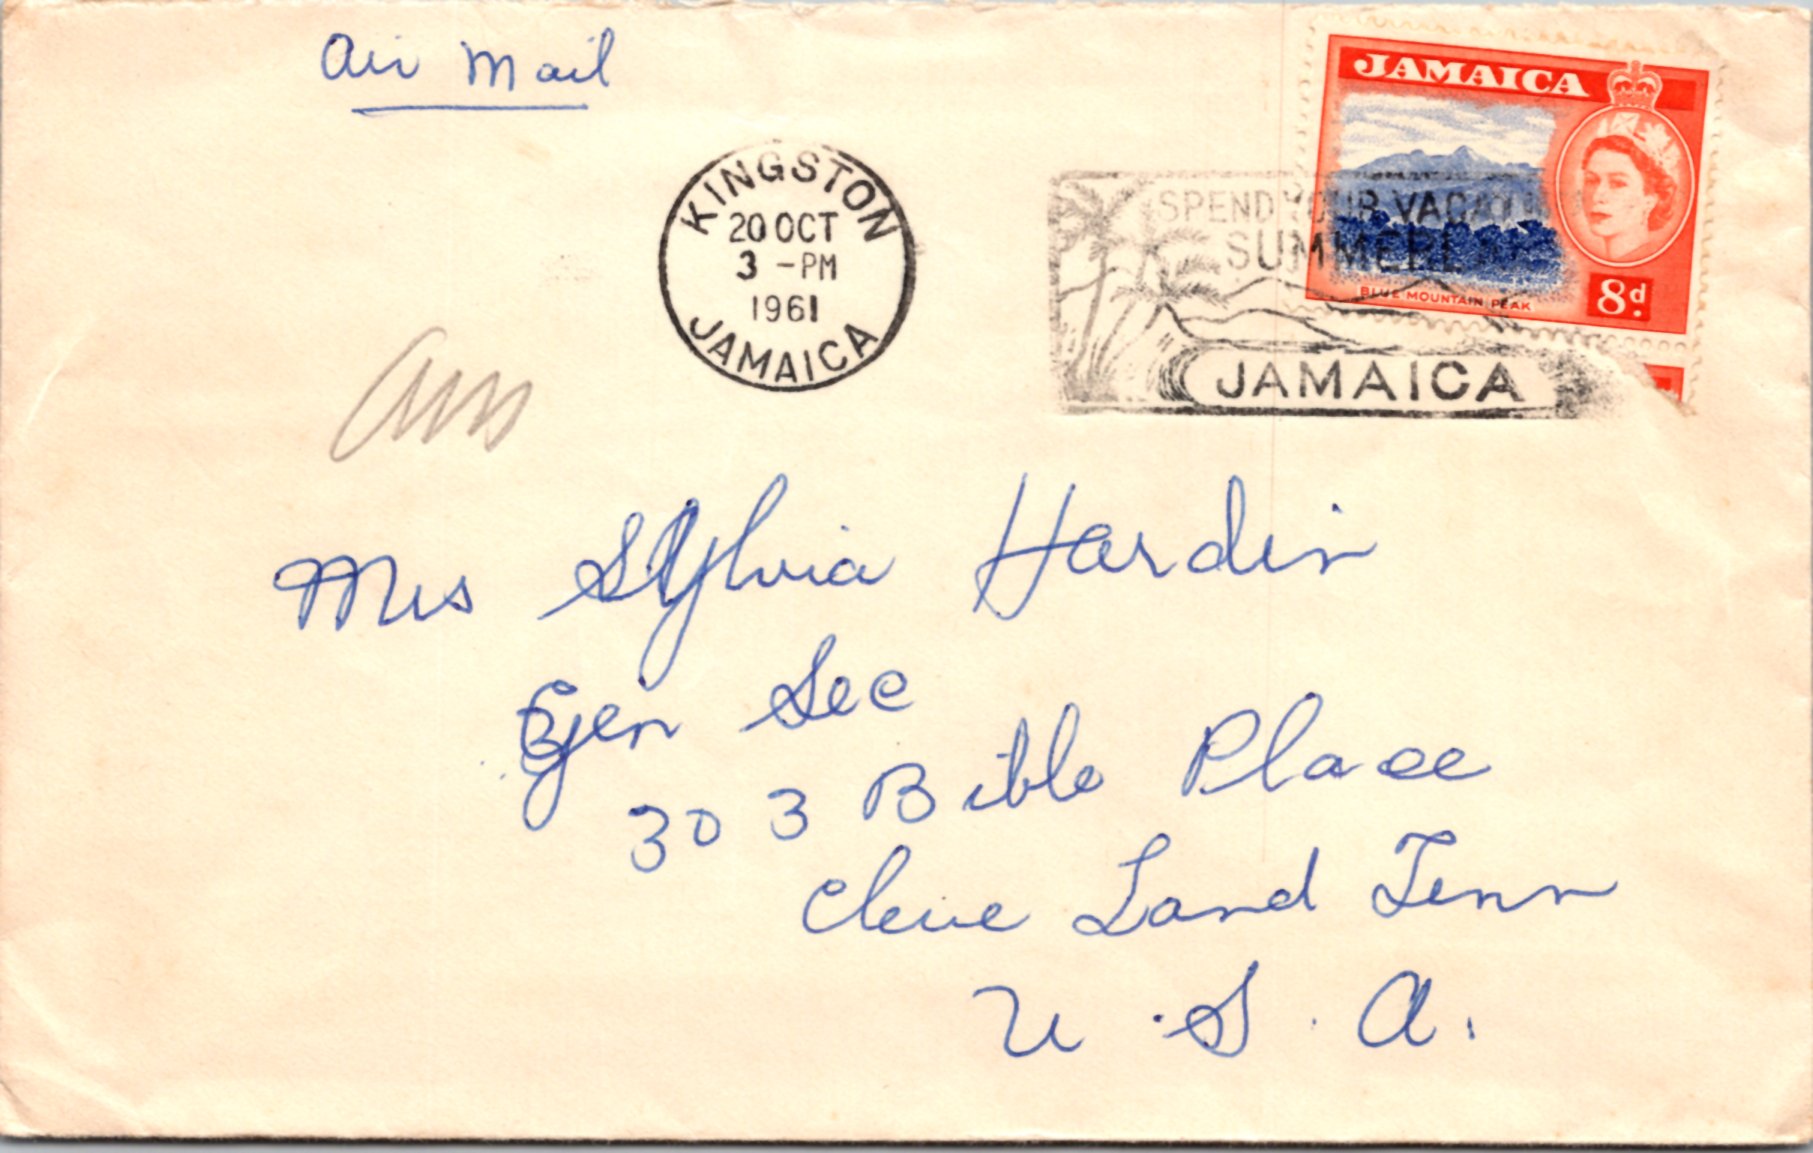 Air Mail
JAMAICA
KINGSTON
20 OCT
3 -PM
1961
JAMAICA
SPEND YOUR
BLUE MOUNTAIN PEAK
8d.
JAMAICA
Ans
Mrs Sylvia Hardin
Gen Sec
303 Bible Place
Cleve Land Tenn
U.S.A.